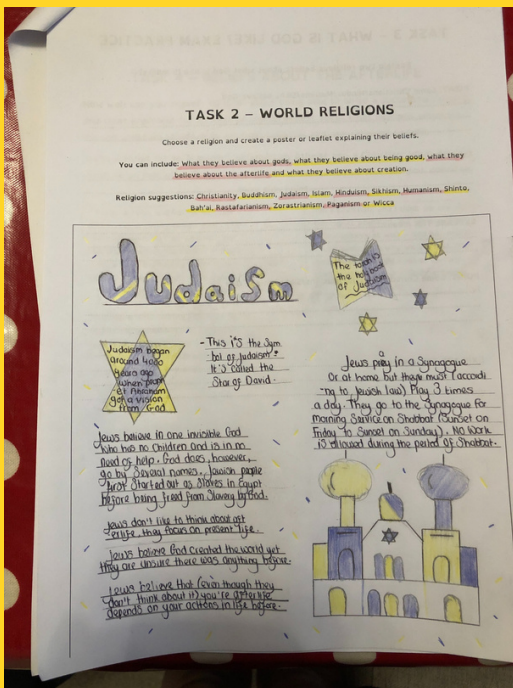 TASK 2 – WORLD RELIGIONS
Choose a religion and create a poster or leaflet explaining their beliefs.
You can include: What they believe about gods, what they believe about being good, what they
believe about the afterlife and what they believe about creation.
Religion suggestions: Christianity, Buddhism, Judaism, Islam, Hinduism, Sikhism, Humanism, Shinto,
Bah'ai, Rastafarianism, Zorastrianism, Paganism or Wicca
Judaism
The torah is
the holy book
of Judaism
Judaism began
around 4000
years ago
when proph
et Abraham
got a vision
from God
- This is the Sym
bol of Judaism
It's called the
Star of David
Jews believe in one invisible God
who has no children and is in no
need of help. God does, however,
go by Several names. Jewish people
first Started out as Slaves in Egypt
before being freed from Slavery by God.
Jews don't like to think about aft
erlife, they focus on present life.
Jews believe God created the world yet
they are unsure there was anything before.
Jews believe that (even though they
don't think about it) you're afterlife
depends on your actions in life before.
Jews pray in a Synagogue
or at home but they must (accordi
-ng to Jewish law) Pray 3 times
a day. They go to the Synagogue for
morning Service on Shabbat (Sunset on
Friday to Sunset on Sunday). No work
is allowed during the period of Shabbat.